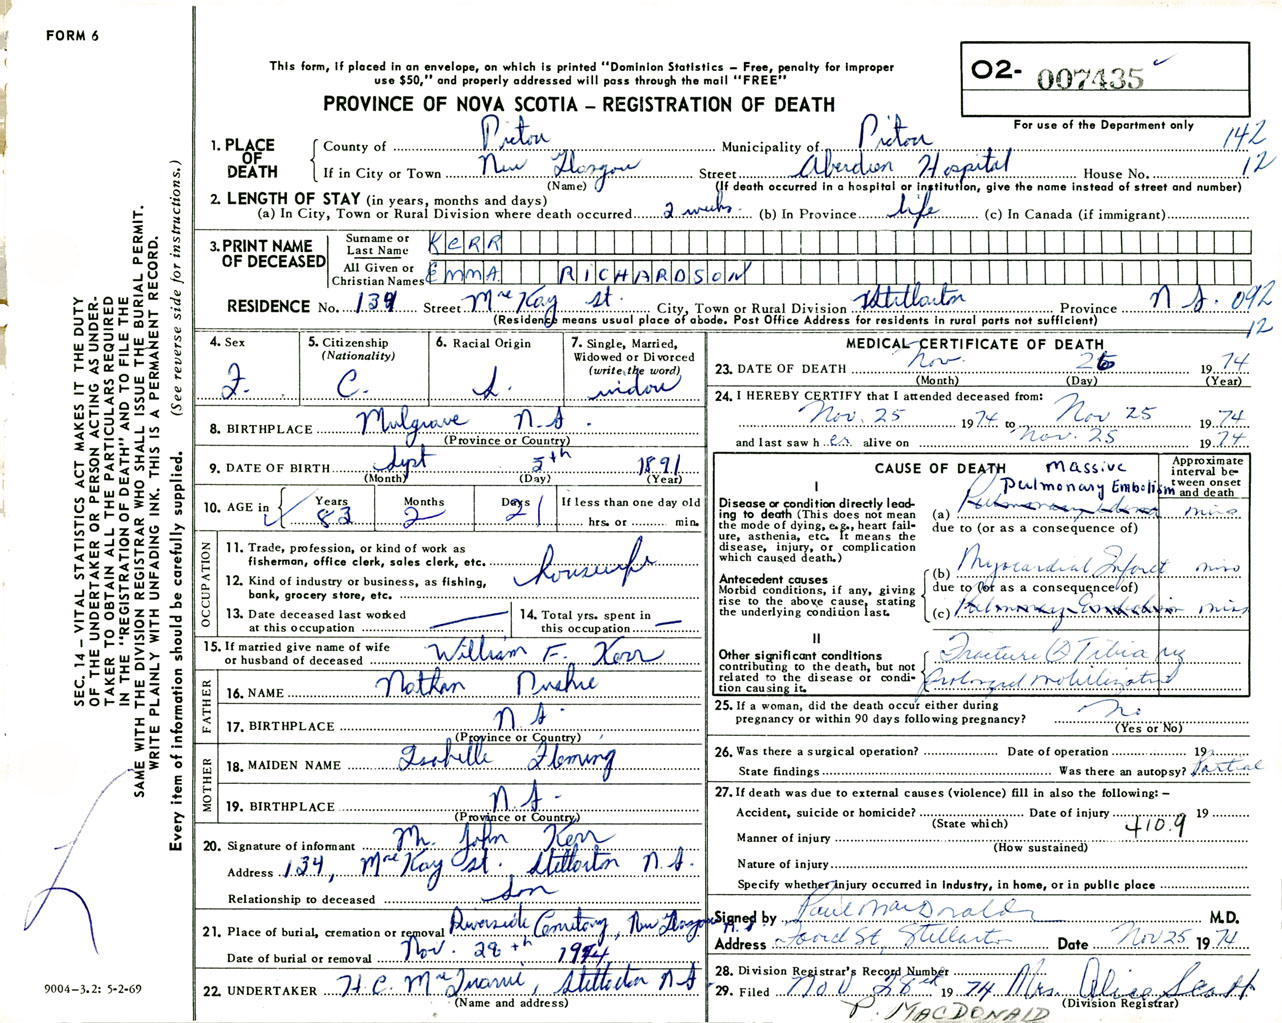 FORM 6
This form, if placed in an envelope, on which is printed "Dominion Statistics – Free, penalty for improper
use $50," and properly addressed will pass through the mail "FREE"
PROVINCE OF NOVA SCOTIA – REGISTRATION OF DEATH
O2- 007435
For use of the Department only
142
12
1. PLACE OF DEATH
County of Pictou Municipality of Pictou
If in City or Town New Glasgow Street Aberdeen Hospital House No.
(Name) (If death occurred in a hospital or institution, give the name instead of street and number)
2. LENGTH OF STAY (in years, months and days)
(a) In City, Town or Rural Division where death occurred 2 weeks (b) In Province life (c) In Canada (if immigrant)
3. PRINT NAME OF DECEASED
Surname or Last Name KERR
All Given or Christian Names EMMA RICHARDSON
RESIDENCE No. 134 Street MacKay St. City, Town or Rural Division Stellarton Province N.S. 092
(Residence means usual place of abode. Post Office Address for residents in rural parts not sufficient)
12
4. Sex
F.
5. Citizenship
(Nationality)
C.
6. Racial Origin
7. Single, Married,
Widowed or Divorced
(write the word)
widow
8. BIRTHPLACE Mulgrave N.S.
(Province or Country)
9. DATE OF BIRTH Sept 5th 1891
(Month) (Day) (Year)
10. AGE in
Years 83
Months 2
Days 21
If less than one day old
hrs. or min.
OCCUPATION
11. Trade, profession, or kind of work as
fisherman, office clerk, sales clerk, etc.
housewife
12. Kind of industry or business, as fishing,
bank, grocery store, etc.
13. Date deceased last worked
at this occupation
14. Total yrs. spent in
this occupation
15. If married give name of wife
or husband of deceased William F. Kerr
FATHER
16. NAME Nathan
17. BIRTHPLACE N.S.
(Province or Country)
MOTHER
18. MAIDEN NAME Isabelle Fleming
19. BIRTHPLACE N.S.
(Province or Country)
20. Signature of informant Mr. John Kerr
Address 134, MacKay St. Stellarton N.S.
Relationship to deceased Son
21. Place of burial, cremation or removal Riverside Cemetery, New Glasgow N.S.
Date of burial or removal Nov. 28th 1974
22. UNDERTAKER H.C. Stellarton N.S.
(Name and address)
MEDICAL CERTIFICATE OF DEATH
23. DATE OF DEATH Nov. 26 19 74
(Month) (Day) (Year)
24. I HEREBY CERTIFY that I attended deceased from:
Nov. 25 19 74 to Nov 25 19 74
and last saw h er alive on Nov. 25 19 74
CAUSE OF DEATH
Approximate
interval be-
tween onset
and death
I
Disease or condition directly lead-
ing to death (This does not mean
the mode of dying, e.g., heart fail-
ure, asthenia, etc. It means the
disease, injury, or complication
which caused death.)
Massive
Pulmonary Embolism
(a) Pulmonary Edema mins
due to (or as a consequence of)
Antecedent causes
Morbid conditions, if any, giving
rise to the above cause, stating
the underlying condition last.
(b) Myocardial Infarct mins
due to (or as a consequence of)
(c) Pulmonary Embolism mins
II
Other significant conditions
contributing to the death, but not
related to the disease or condi-
tion causing it.
Fracture Tibia
prolonged mobilization
25. If a woman, did the death occur either during
pregnancy or within 90 days following pregnancy? No
(Yes or No)
26. Was there a surgical operation? Date of operation 19
State findings Was there an autopsy? Partial
27. If death was due to external causes (violence) fill in also the following: –
Accident, suicide or homicide? Date of injury 19
(State which)
410.9
Manner of injury
(How sustained)
Nature of injury
Specify whether injury occurred in Industry, in home, or in public place
Signed by Paul MacDonald M.D.
Address Foord St, Stellarton Date Nov 25 19 74
28. Division Registrar's Record Number
29. Filed Nov 28th 19 74 Mrs. Alice Scott
(Division Registrar)
P. MACDONALD
SEC. 14 – VITAL STATISTICS ACT MAKES IT THE DUTY
OF THE UNDERTAKER OR PERSON ACTING AS UNDER-
TAKER TO OBTAIN ALL THE PARTICULARS REQUIRED
IN THE "REGISTRATION OF DEATH" AND TO FILE THE
SAME WITH THE DIVISION REGISTRAR WHO SHALL ISSUE THE BURIAL PERMIT.
WRITE PLAINLY WITH UNFADING INK. THIS IS A PERMANENT RECORD.
Every item of information should be carefully supplied. (See reverse side for instructions.)
9004-3.2: 5-2-69